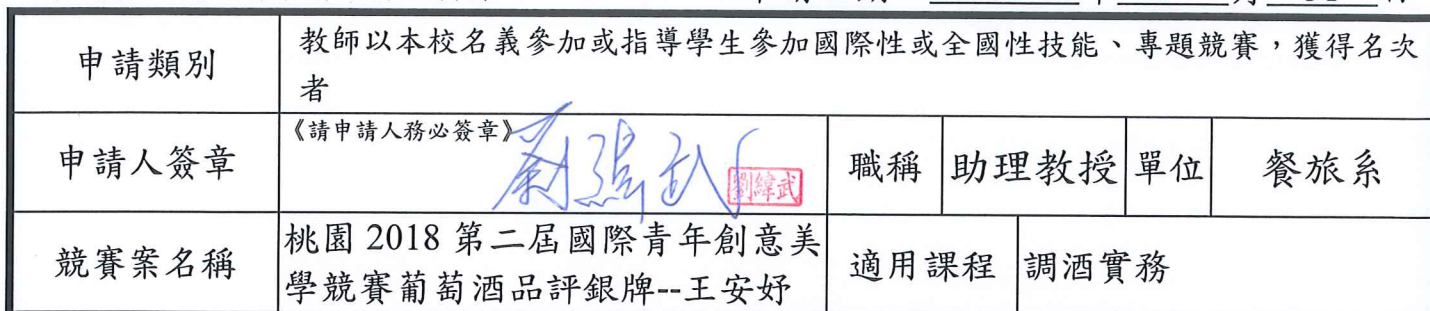 申請類別
教師以本校名義參加或指導學生參加國際性或全國性技能、專題競賽,獲得名次
者
申請人簽章
《請申請人務必簽章》
劉緯武
劉緯武
職稱
助理教授
單位
餐旅系
競賽案名稱
桃園 2018 第二屆國際青年創意美
學競賽葡萄酒品評銀牌--王安妤
適用課程
調酒實務